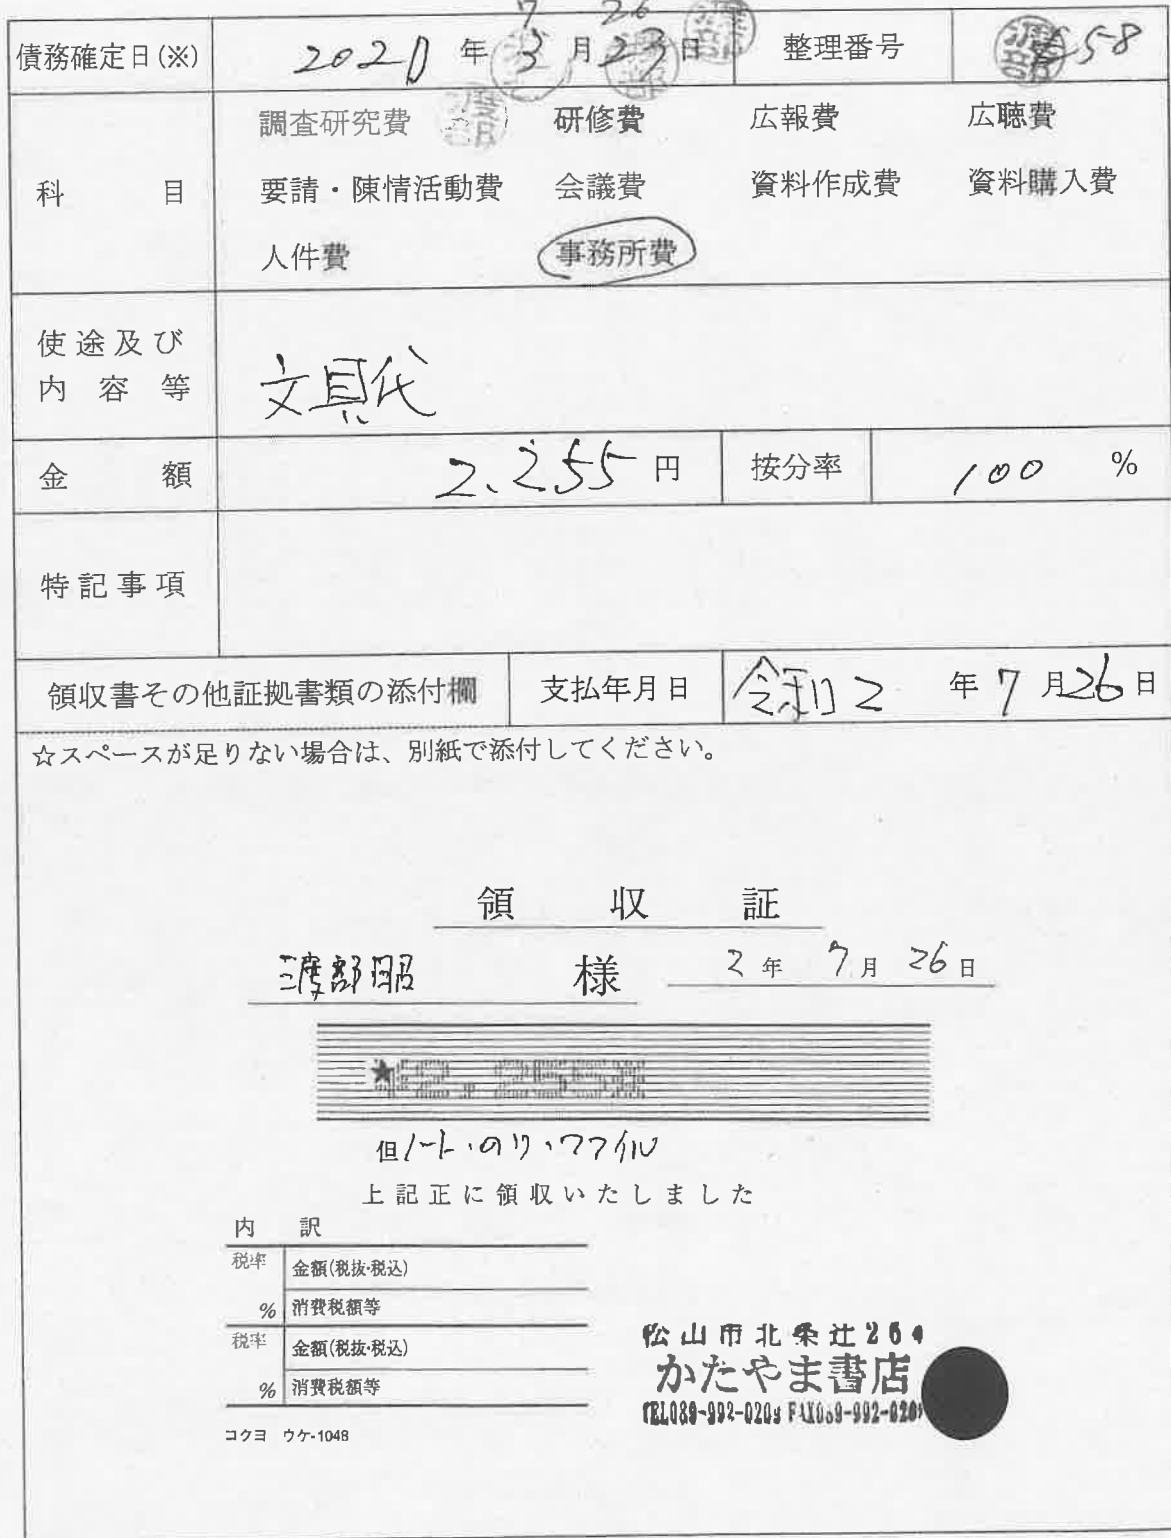 7 26
債務確定日(※) 2020年3月23日 整理番号 58
調査研究費 研修費 広報費 広聴費
科目 要請・陳情活動費 会議費 資料作成費 資料購入費
人件費 事務所費
使途及び内容等 文具代
金額 2,255円 按分率 100 %
特記事項
領収書その他証拠書類の添付欄 支払年月日 令和2年7月26日
☆スペースが足りない場合は、別紙で添付してください。
領収証
渡部昭 様 2年7月26日
★¥2,255※
但ノート・のり・ファイル
上記正に領収いたしました
内訳
税率 金額(税抜・税込)
% 消費税額等
税率 金額(税抜・税込)
% 消費税額等
松山市北条辻264
かたやま書店
TEL089-992-0209 FAX089-992-0209
コクヨ ウケ-1048